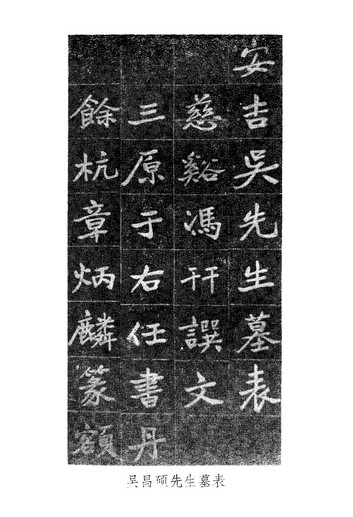 安吉吳先生墓表
慈谿馮幵譔文
三原于右任書丹
餘杭章炳麟篆額
吴昌硕先生墓表